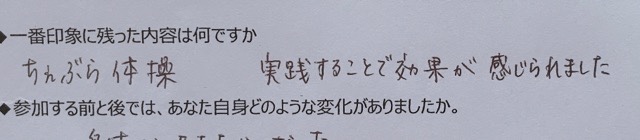 ◆一番印象に残った内容は何ですか
ちんぶら体操 実践することで効果が感じられました
◆参加する前と後では、あなた自身どのような変化がありましたか。